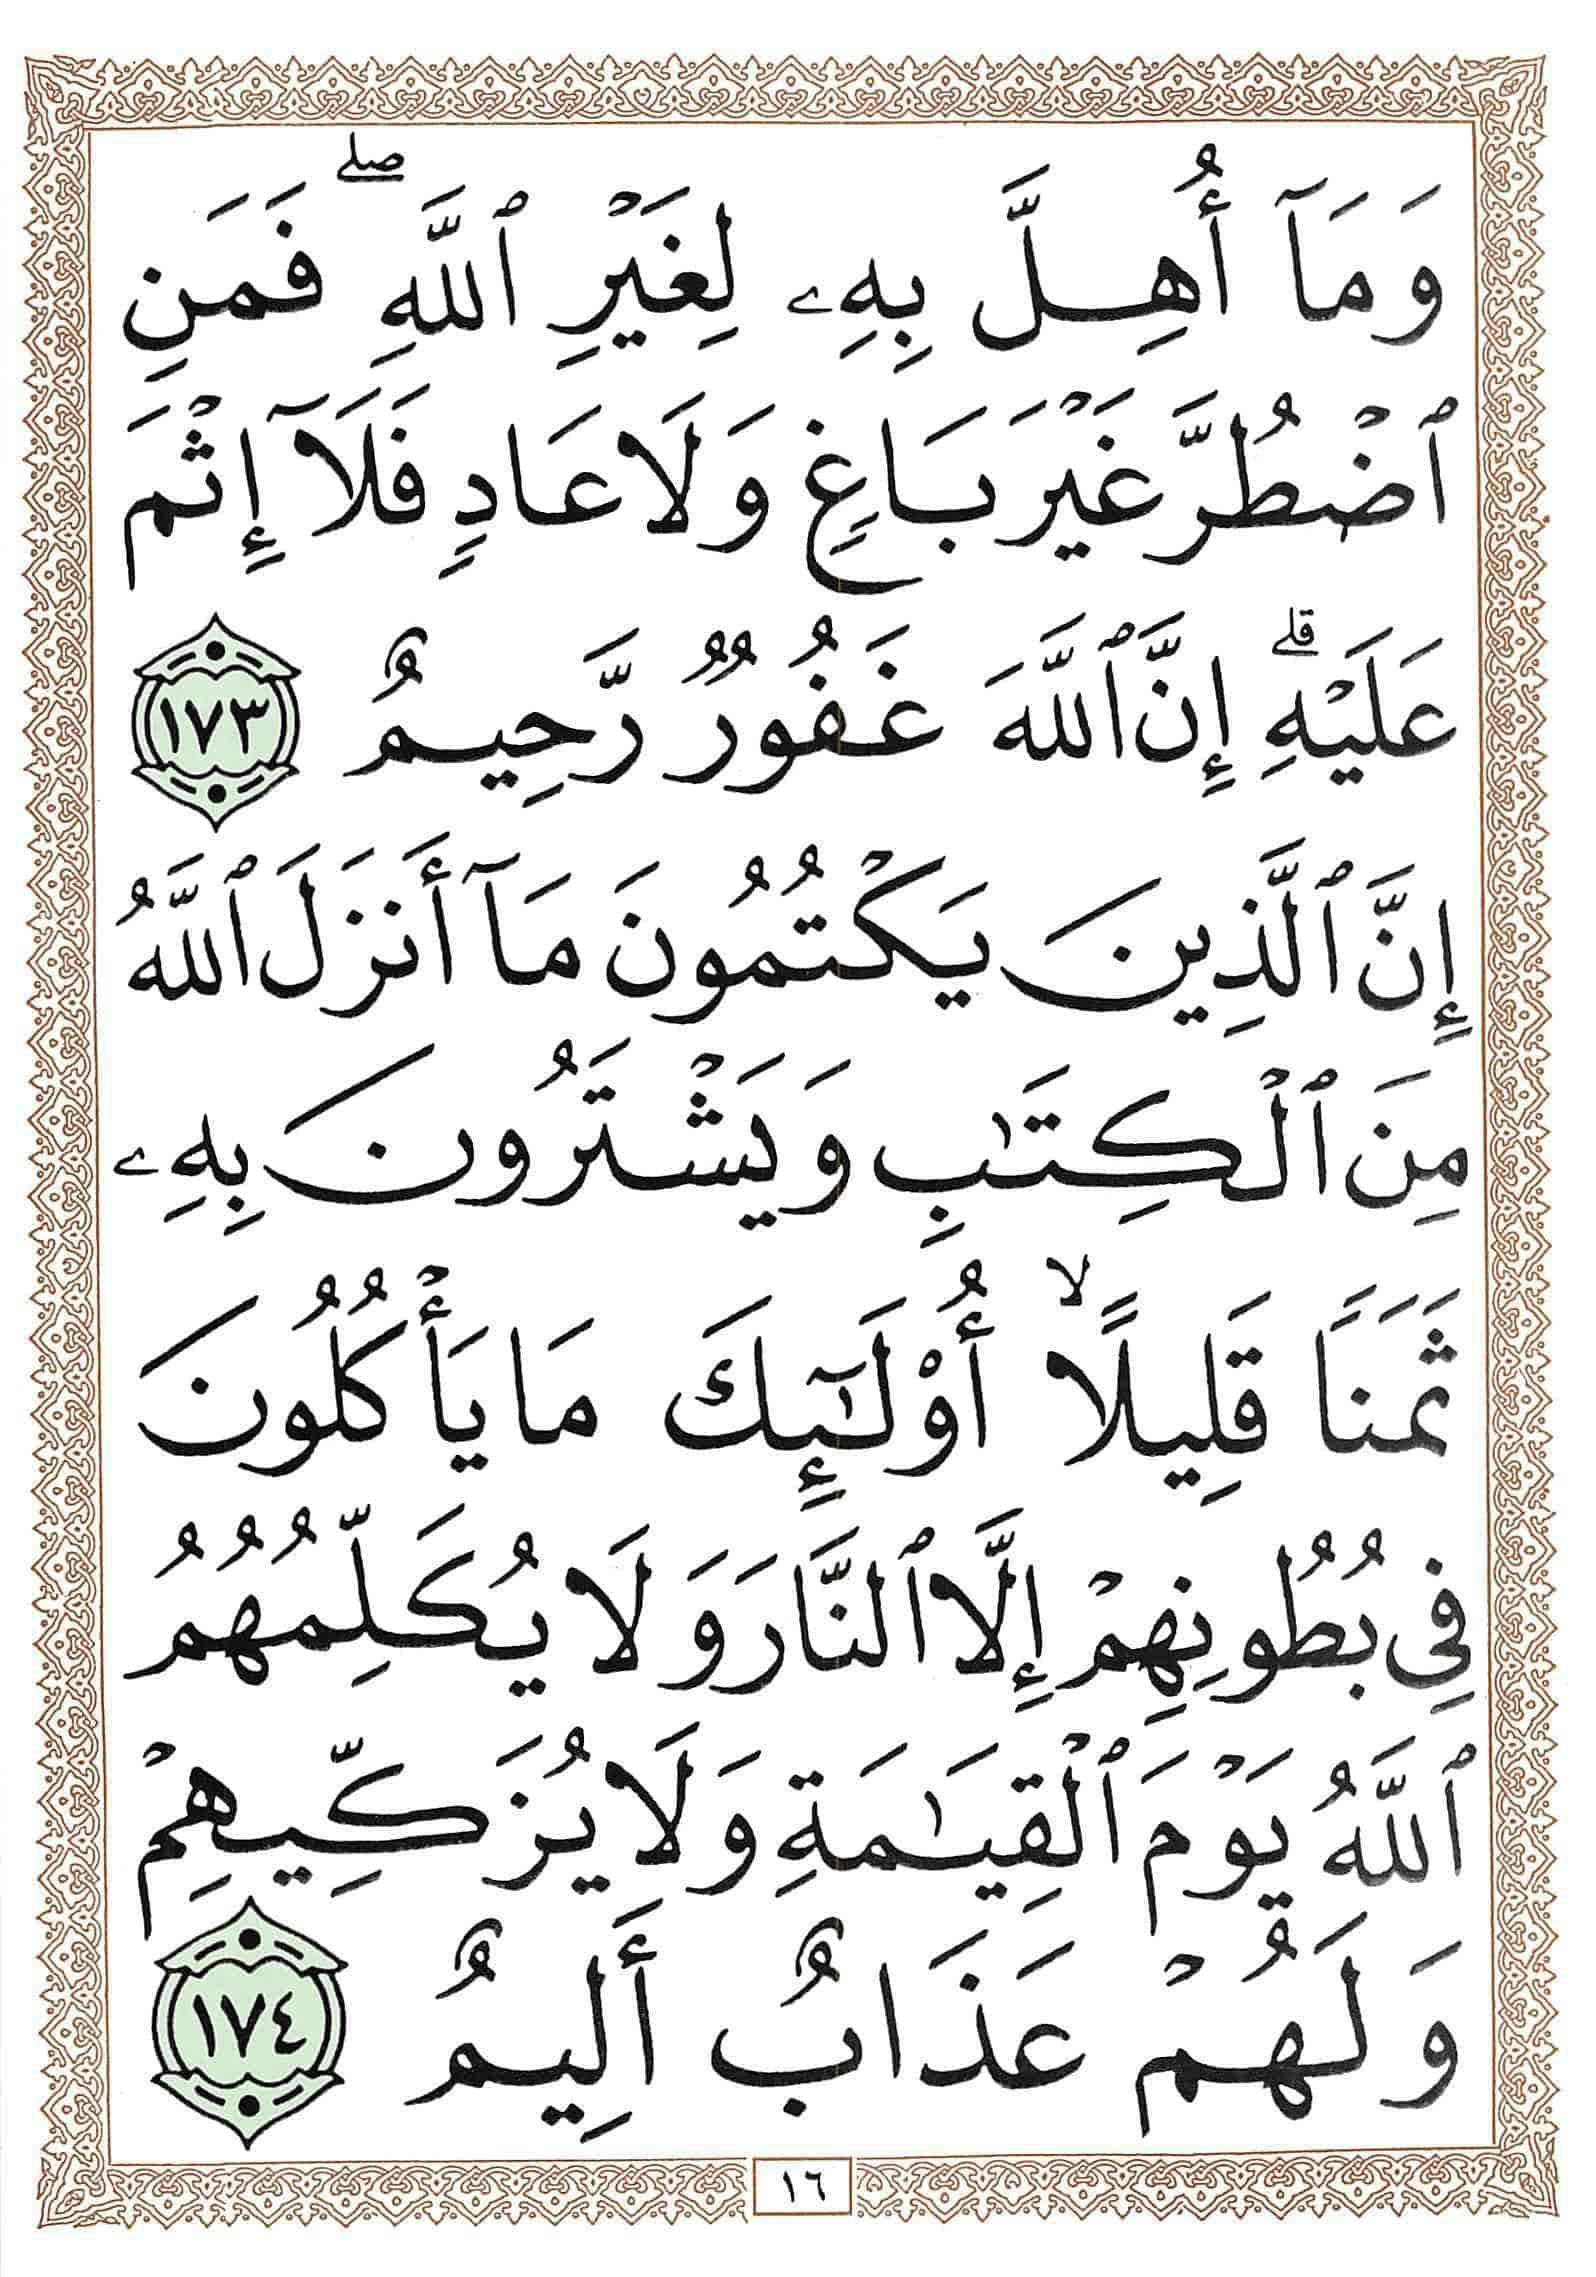 وَمَآ أُهِلَّ بِهِۦ لِغَيْرِ ٱللَّهِ ۖ فَمَنِ
ٱضْطُرَّ غَيْرَ بَاغٍ وَلَا عَادٍ فَلَآ إِثْمَ
عَلَيْهِ ۗ إِنَّ ٱللَّهَ غَفُورٌ رَّحِيمٌ ١٧٣
إِنَّ ٱلَّذِينَ يَكْتُمُونَ مَآ أَنزَلَ ٱللَّهُ
مِنَ ٱلْكِتَـٰبِ وَيَشْتَرُونَ بِهِۦ
ثَمَنًا قَلِيلًا ۙ أُو۟لَـٰٓئِكَ مَا يَأْكُلُونَ
فِى بُطُونِهِمْ إِلَّا ٱلنَّارَ وَلَا يُكَلِّمُهُمُ
ٱللَّهُ يَوْمَ ٱلْقِيَـٰمَةِ وَلَا يُزَكِّيهِمْ
وَلَهُمْ عَذَابٌ أَلِيمٌ ١٧٤
١٦